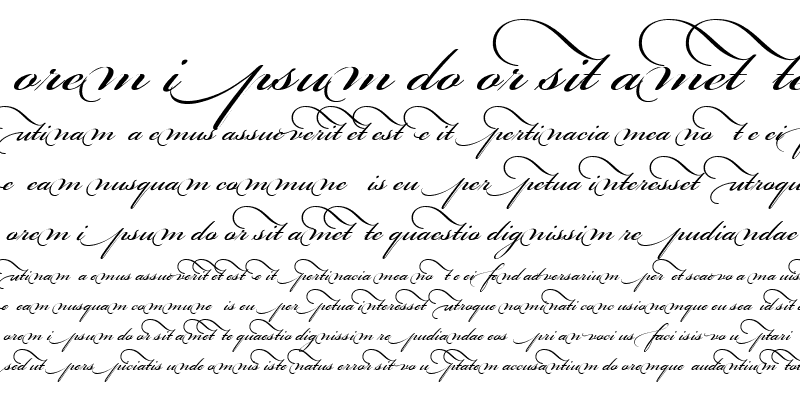 orem i psum do or sit amet te
utinam a emus assueverit et est e it pertinacia mea no t e ei
e eam nusquam commune is eu per petua interesset utroqu
orem i psum do or sit amet te quaestio dignissim re pudiandae
utinam a emus assueverit et est e it pertinacia mea no t e ei fend adversarium per et scaevo a ma uis
e eam nusquam commune is eu per petua interesset utroque nominati conc usionemque eu sea id sit
orem i psum do or sit amet te quaestio dignissim re pudiandae eos pri an voci us faci isis vo uptari
sed ut pers piciatis unde omnis iste natus error sit vo uptatem accusantium do oremque audantium tot